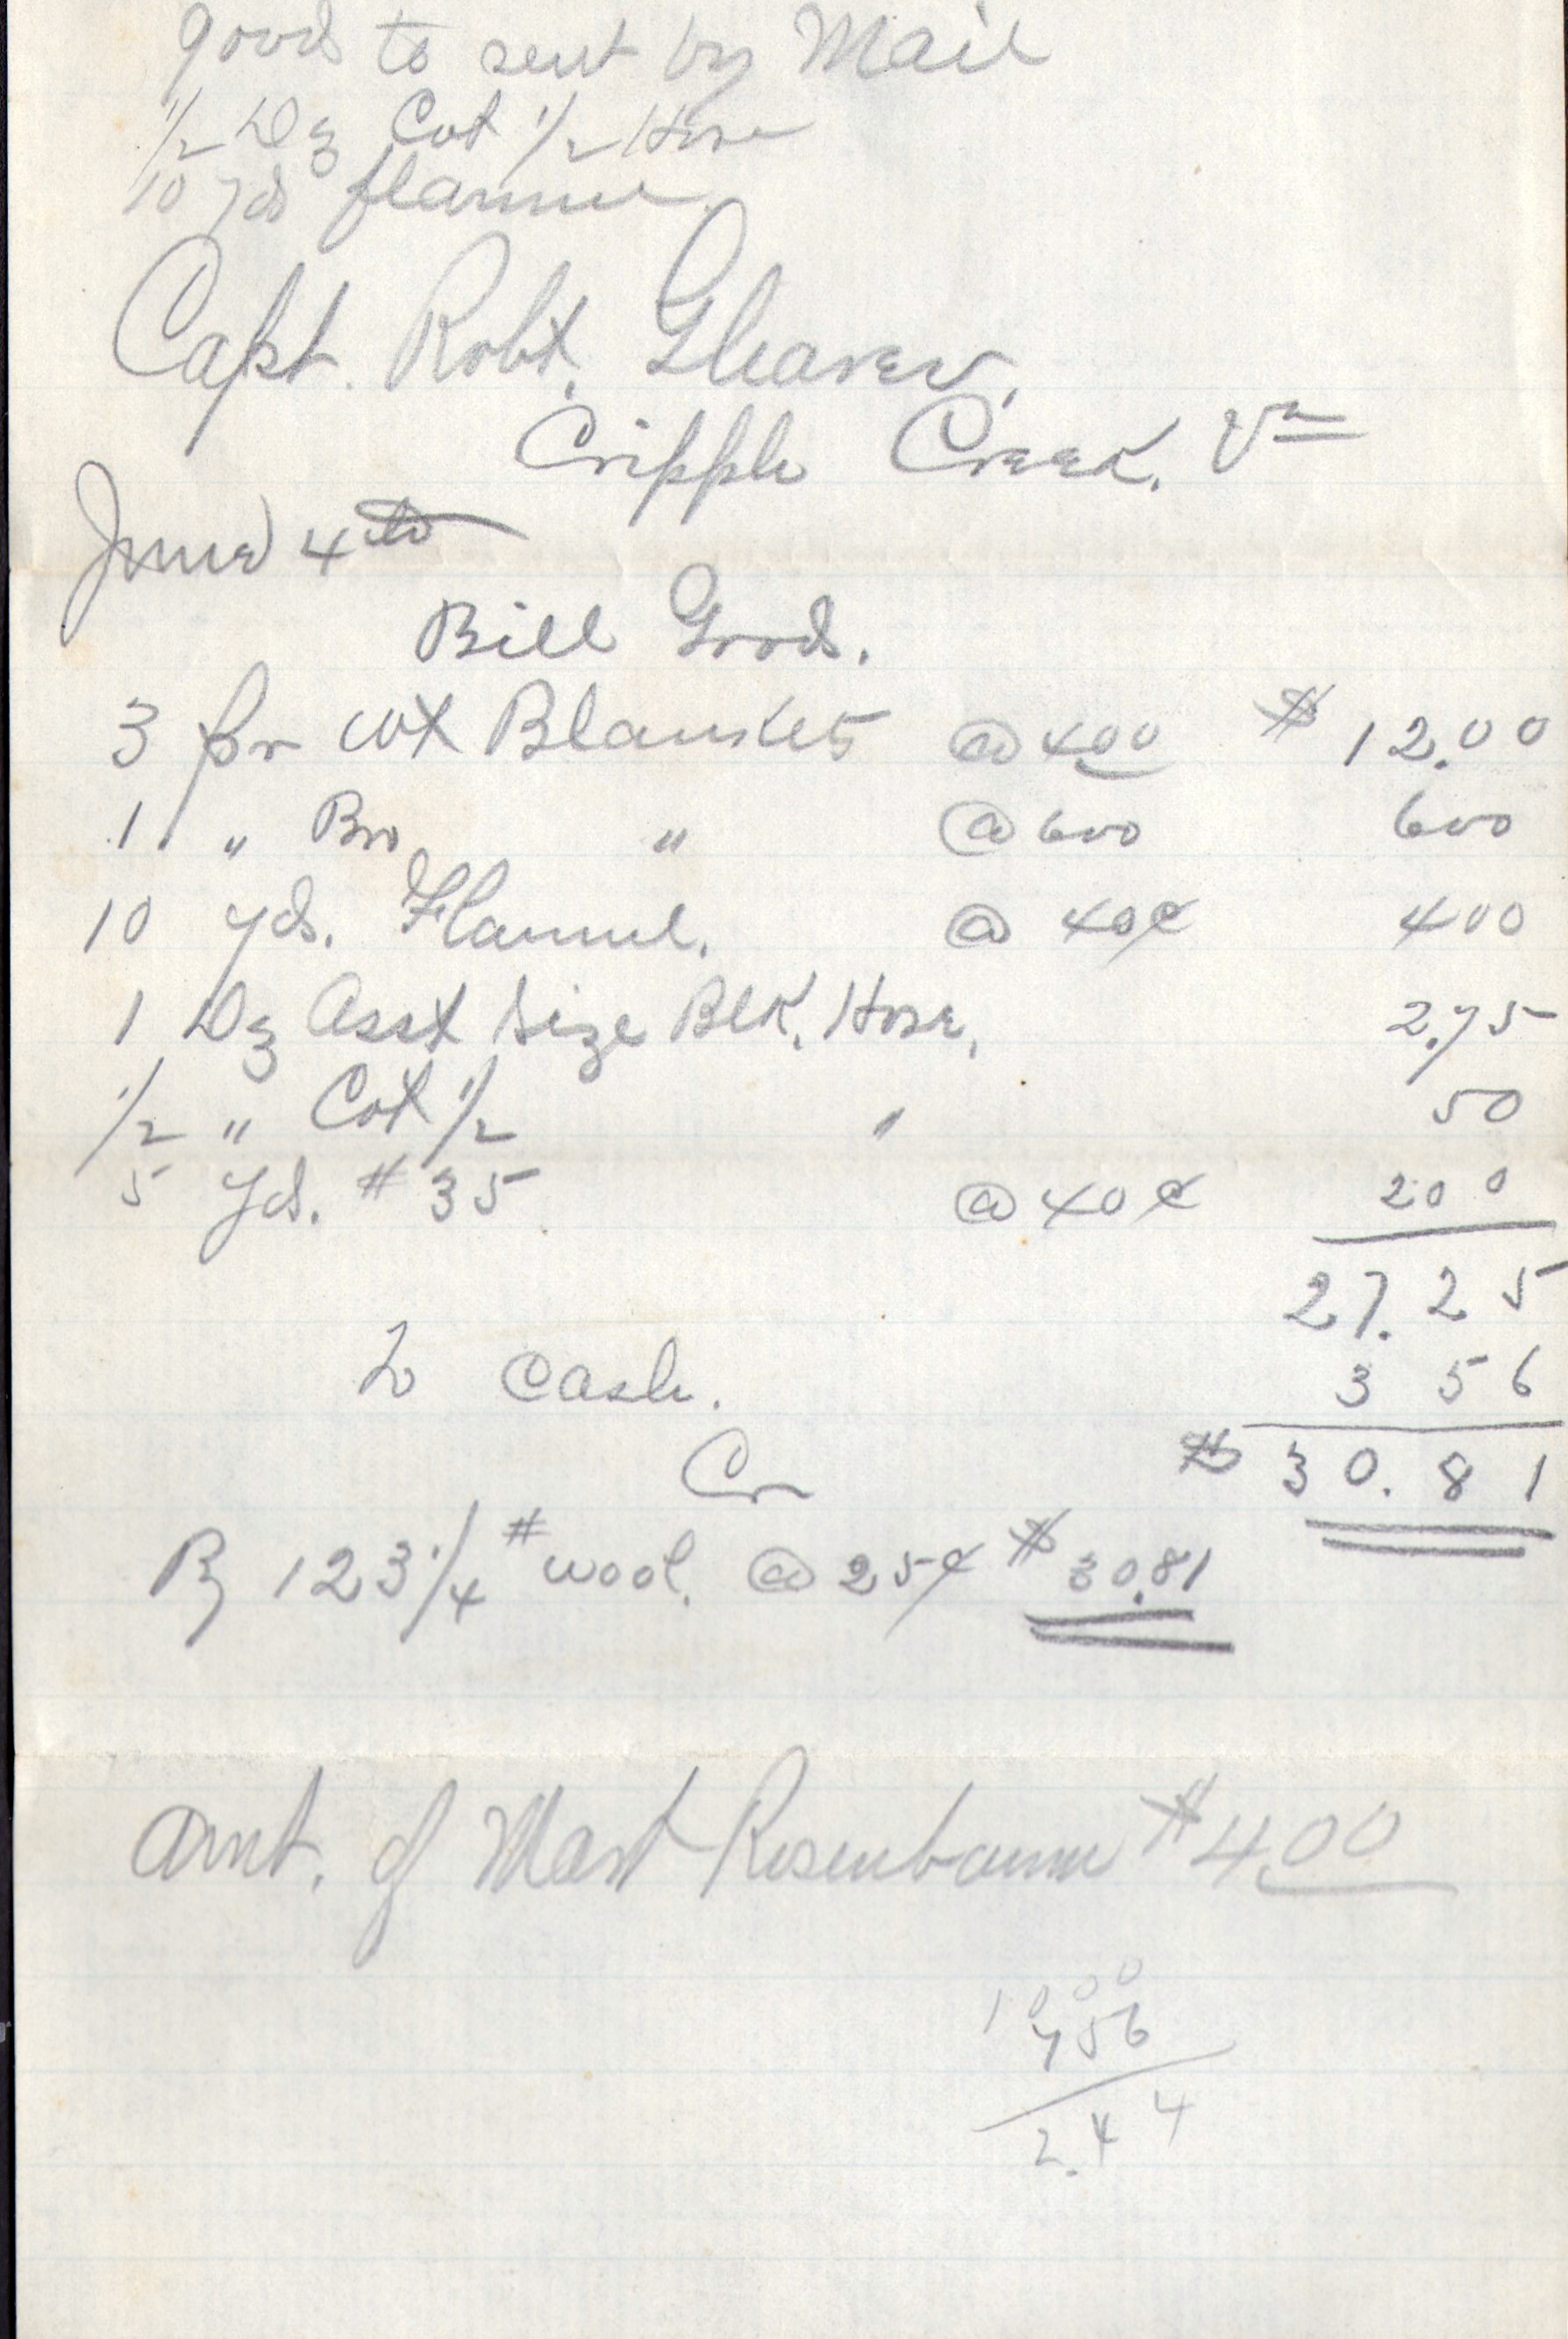 goods to sent by Mail
1/2 Dz Cot 1/2 Hose
10 yds flannel
Capt. Robt. Gleaves,
Cripple Creek. Va
June 4th
Bill Goods.
3 pr wt Blankets @ 400 $ 12.00
1 " Bro " @ 600 600
10 yds. Flannel. @ 40¢ 400
1 Dz Asst Size Blk. Hose, 2.75
1/2 " Cot 1/2 " 50
5 Yds. # 35 @ 40¢ 200
27.25
To Cash. 3 56
$ 30.81
Cr
By 123 1/4 # wool. @ 25¢ $ 30.81
Amt. of Mart Rosenbaum $4.00
1000
756
2.44